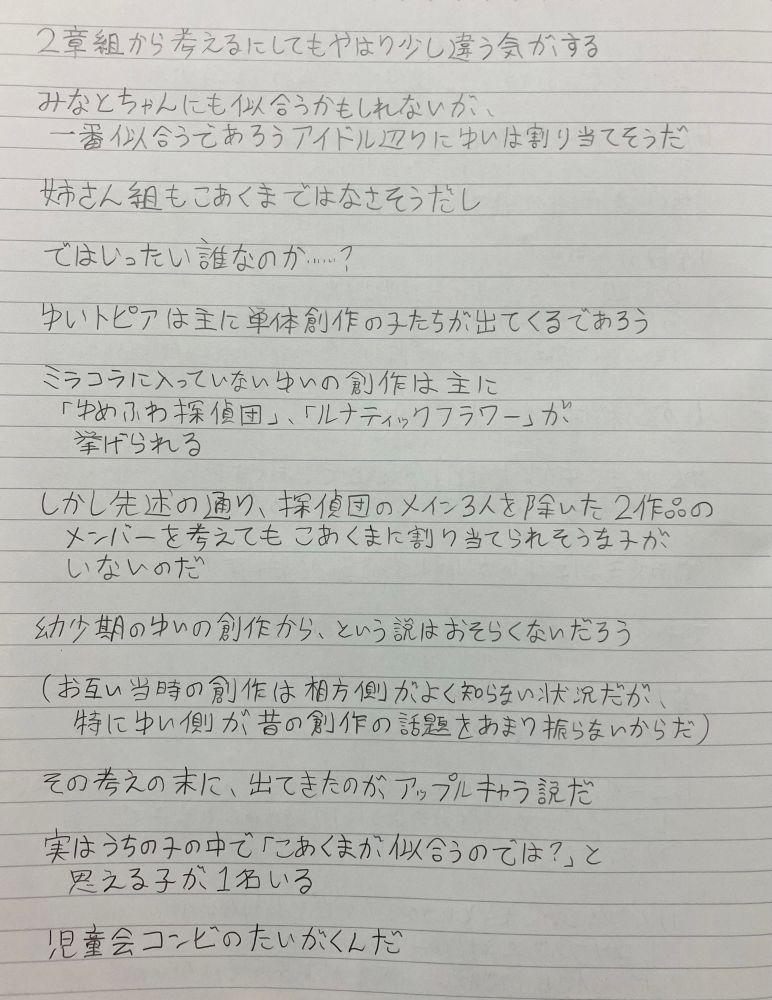 ２章組から考えるにしてもやはり少し違う気がする
みなとちゃんにも似合うかもしれないが、
一番似合うであろうアイドル辺りにゆいは割り当てそうだ
姉さん組もこあくまではなさそうだし
ではいったい誰なのか……?
ゆいトピアは主に単体創作の子たちが出てくるであろう
ミラコラに入っていないゆいの創作は主に
「ゆめふわ探偵団」、「ルナティックフラワー」が
挙げられる
しかし先述の通り、探偵団のメイン3人を除いた2作品の
メンバーを考えてもこあくまに割り当てられそうな子が
いないのだ
幼少期のゆいの創作から、という説はおそらくないだろう
(お互い当時の創作は相方側がよく知らない状況だが、
特にゆい側が昔の創作の話題をあまり振らないからだ)
その考えの末に、出てきたのが、アップルキャラ説だ
実はうちの子の中で「こあくまが似合うのでは?」と
思える子が1名いる
児童会コンビのたいがくんだ